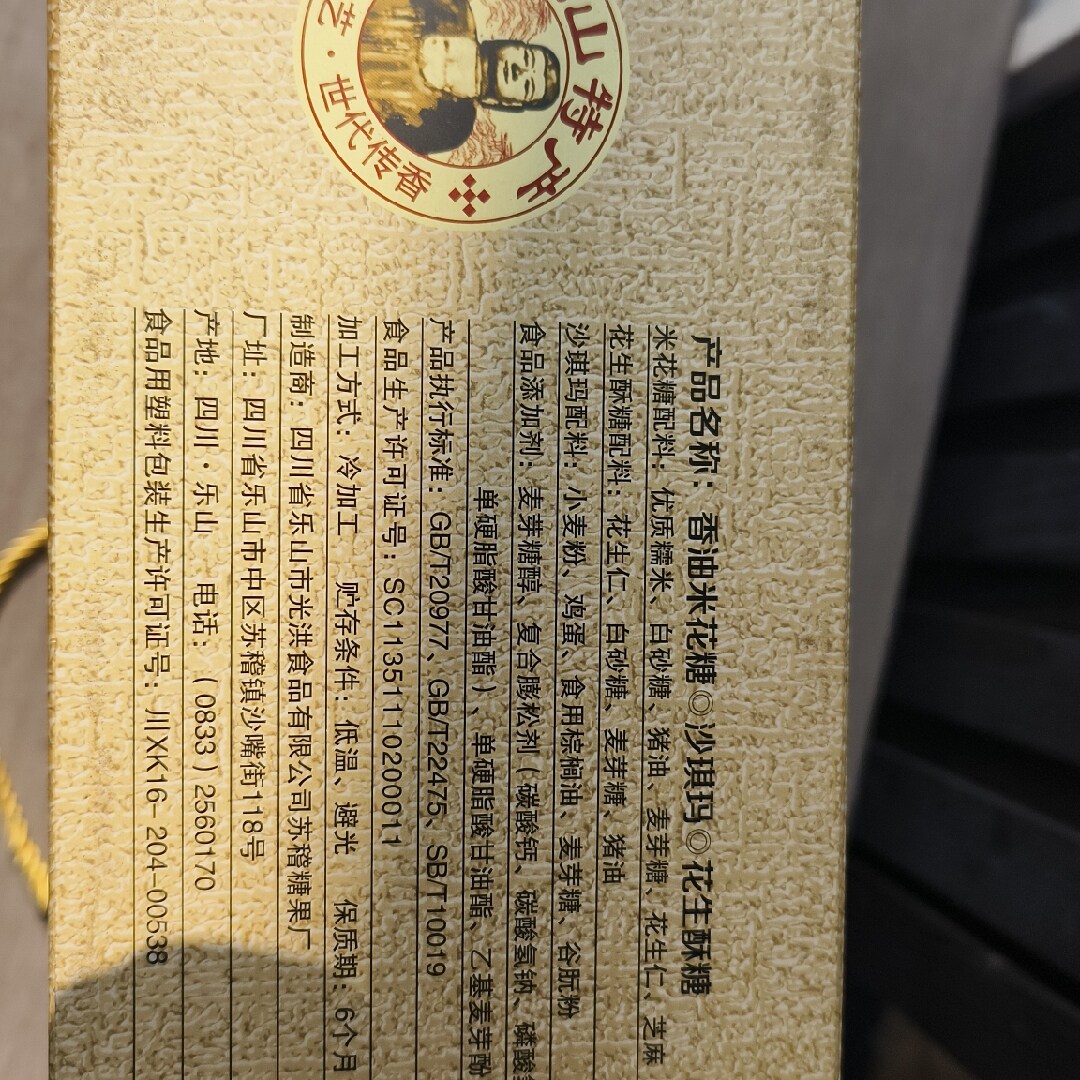 山特产
艺·世代传香
产品名称：香油米花糖◎沙琪玛◎花生酥糖
米花糖配料：优质糯米、白砂糖、猪油、麦芽糖、花生仁、芝麻
花生酥糖配料：花生仁、白砂糖、麦芽糖、猪油
沙琪玛配料：小麦粉、鸡蛋、食用棕榈油、麦芽糖、谷朊粉
食品添加剂：麦芽糖醇、复合膨松剂（碳酸钙、碳酸氢钠、磷酸
单硬脂酸甘油酯）、单硬脂酸甘油酯、乙基麦芽酚
产品执行标准：GB/T20977、GB/T22475、SB/T10019
食品生产许可证号：SC11351110200011
加工方式：冷加工 贮存条件：低温、避光 保质期：6个月
制造商：四川省乐山市光洪食品有限公司苏稽糖果厂
厂址：四川省乐山市中区苏稽镇沙嘴街118号
产地：四川·乐山 电话：(0833)2560170
食品用塑料包装生产许可证号：川XK16-204-00538